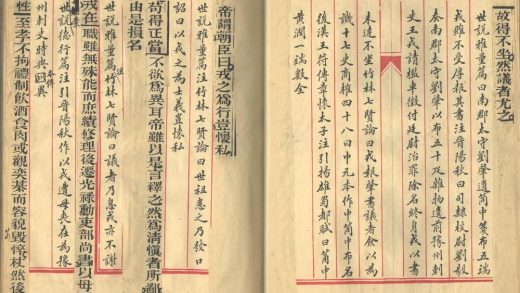 故得不坐然議者尤之
世說雅量篇曰南郡太守劉肇遺筒中箋布五端
戎雖不受厚報其書注晉陽秋曰司隸校尉劉毅
奏南郡太守劉肇以布五十疋雜物遺前豫州刺
史王戎請檻車徵付廷尉治罪除名終身戎以書
未達不坐竹林七賢論曰戎報肇書議者僉以為
譏十七史商榷四十八曰中元本作中筒中布名
後漢王符傳章懷太子注引揚雄蜀都賦曰筒中
黃潤一端數金
帝謂朝臣曰戎之為行豈懷私
世說雅量篇注竹林七賢論曰世祖患之乃發口
詔曰以戎之為士義豈懷私
苟得正當不欲為異耳帝雖以是言釋之然為清慎者所鄙
由是損名
世說雅量篇注竹林七賢論曰議者乃息戎亦不謝
戎在職雖無殊能而庶績修理後遷光祿勳吏部尚書以母
世說德行篇注引晉陽秋作以戎遺母喪在為豫
州刺史時與本傳異
性至孝不拘禮制飲酒食肉或觀奕棊而容貌毀悴杖然後